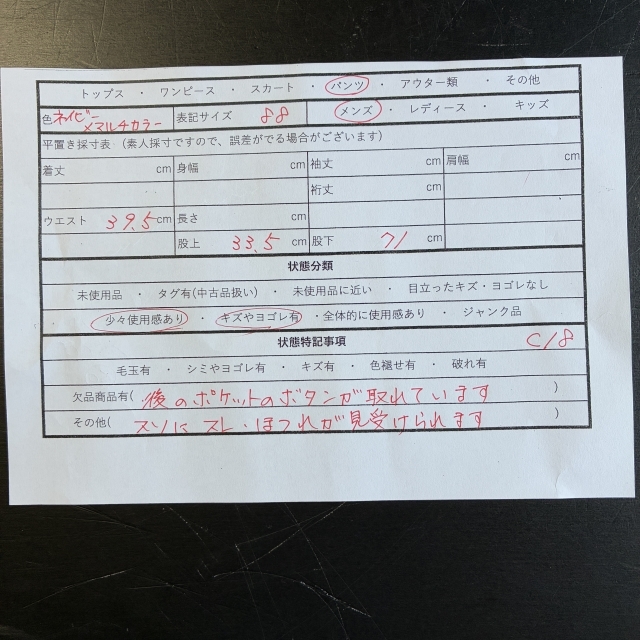 トップス ・ ワンピース ・ スカート ・ パンツ ・ アウター類 ・ その他
色 ネイビー×マルチカラー 表記サイズ 88 メンズ ・ レディース ・ キッズ
平置き採寸表 (素人採寸ですので、誤差がでる場合がございます)
着丈 cm 身幅 cm 袖丈 cm 肩幅 cm
裄丈 cm
ウエスト 39.5cm 長さ cm
股上 33.5 cm 股下 71 cm
状態分類
未使用品 ・ タグ有(中古品扱い) ・ 未使用品に近い ・ 目立ったキズ・ヨゴレなし
少々使用感あり ・ キズやヨゴレ有 ・全体的に使用感あり ・ ジャンク品
状態特記事項 C18
毛玉有 ・ シミやヨゴレ有 ・ キズ有 ・ 色褪せ有 ・ 破れ有
欠品商品有( 後のポケットのボタンが取れています )
その他( スソにスレ・ほつれが見受けられます )